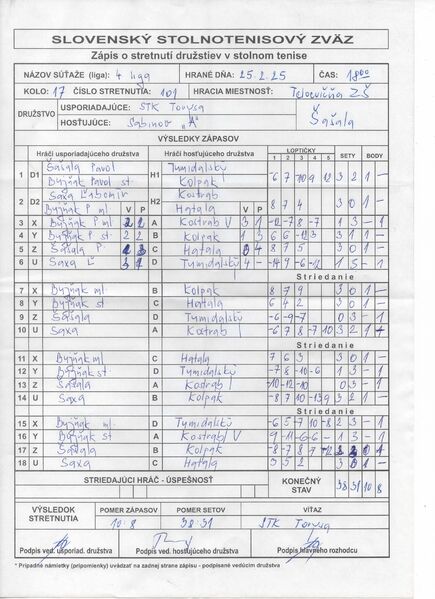 SLOVENSKÝ STOLNOTENISOVÝ ZVÄZ
Zápis o stretnutí družstiev v stolnom tenise
NÁZOV SÚŤAŽE (liga): 4 liga HRANÉ DŇA: 25.2.25 ČAS: 18 00
KOLO: 17 ČÍSLO STRETNUTIA: 101 HRACIA MIESTNOSŤ: Telocvičňa ZŠ
DRUŽSTVO USPORIADAJÚCE: STK Torysa Šašala
HOSŤUJÚCE: Sabinov "A"
VÝSLEDKY ZÁPASOV
Hráči usporiadajúceho družstva Hráči hosťujúceho družstva LOPTIČKY SETY BODY
1 2 3 4 5
1 D1 Šašala Pavol H1 Tumidalský
Bujňák Pavol st. Kolpak
2 D2 Saxa Ľubomír H2 Kostrab 8 7 4 3 0 1
Bujňák P ml V P Hatala V P
3 X Bujňák P ml A Kostrab V 3 1 -12 -7 8 -7 1 3 - 1
4 Y Bujňák P st 2 2 B Kolpak 1 3
5 Z Šašala P. C Hatala 8 7 5 3 0 1
6 U Saxa Ľ D Tumidalský
Striedanie
7 X Bujňák ml B Kolpak 8 7 9 3 0 1 -
8 Y Bujňák st C Hatala 6 4 2 3 0 1 -
9 Z Šašala D Tumidalský -6 -9 -7 0 3 - 1
10 U Saxa A Kostrab -6 7 8 -7 10 3 2 1
Striedanie
11 X Bujňák ml C Hatala 7 6 3 3 0 1 -
12 Y Bujňák st. D Tumidalský -7 8 -10 -6 1 3 - 1
13 Z Šašala A Kostrab -10 -12 -10 0 3 - 1
14 U Saxa B Kolpak
Striedanie
15 X Bujňák ml. D Tumidalský -6 5 7 -10 -8 2 3 - 1
16 Y Bujňák st A Kostrab V 9 -11 -6 -6 1 3 - 1
17 Z Šašala B Kolpak
18 U Saxa C Hatala 3 5 2
STRIEDAJÚCI HRÁČ - ÚSPEŠNOSŤ KONEČNÝ STAV 38 31 10 8
VÝSLEDOK STRETNUTIA POMER ZÁPASOV POMER SETOV VÍŤAZ
10:8 38:31 STK Torysa
Podpis ved. usporiad. družstva Podpis ved. hosťujúceho družstva Podpis hlavného rozhodcu
* Prípadné námietky (pripomienky) uvádzať na zadnej strane zápisu - podpísané vedúcim družstva